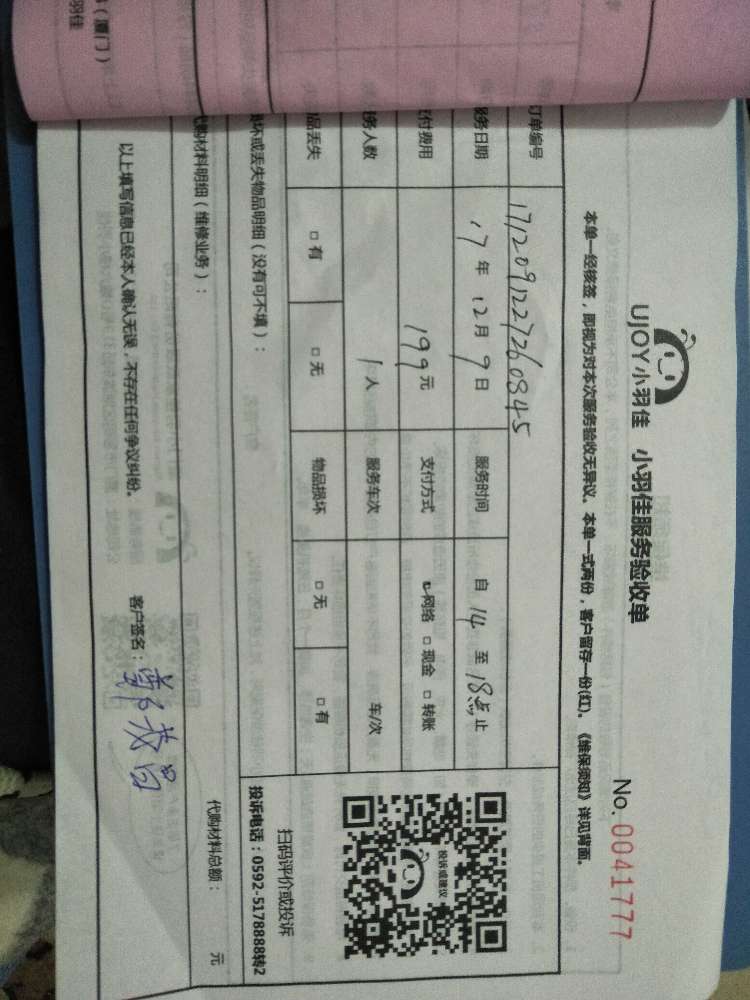 UJOY小羽佳 小羽佳服务验收单
No. 0041777
本单一经核签，即视为对本次服务验收无异议。本单一式两份，客户留存一份(红)。《维保须知》详见背面。
订单编号 1712091227260845
服务日期 17年12月9日 服务时间 自14至18点止
付费用 199元 支付方式 网络 □现金 □转账
服务人数 1人 服务车次 车/次
品丢失 □有 □无 物品损坏 □无 □有
损坏或丢失物品明细（没有可不填）：
投诉或建议
扫码评价或投诉
投诉电话：0592-5178888转2
代购材料明细（维修业务）：
代购材料总额： 元
以上填写信息已经本人确认无误，不存在任何争议纠纷。 客户签名：
（厦门）
羽佳